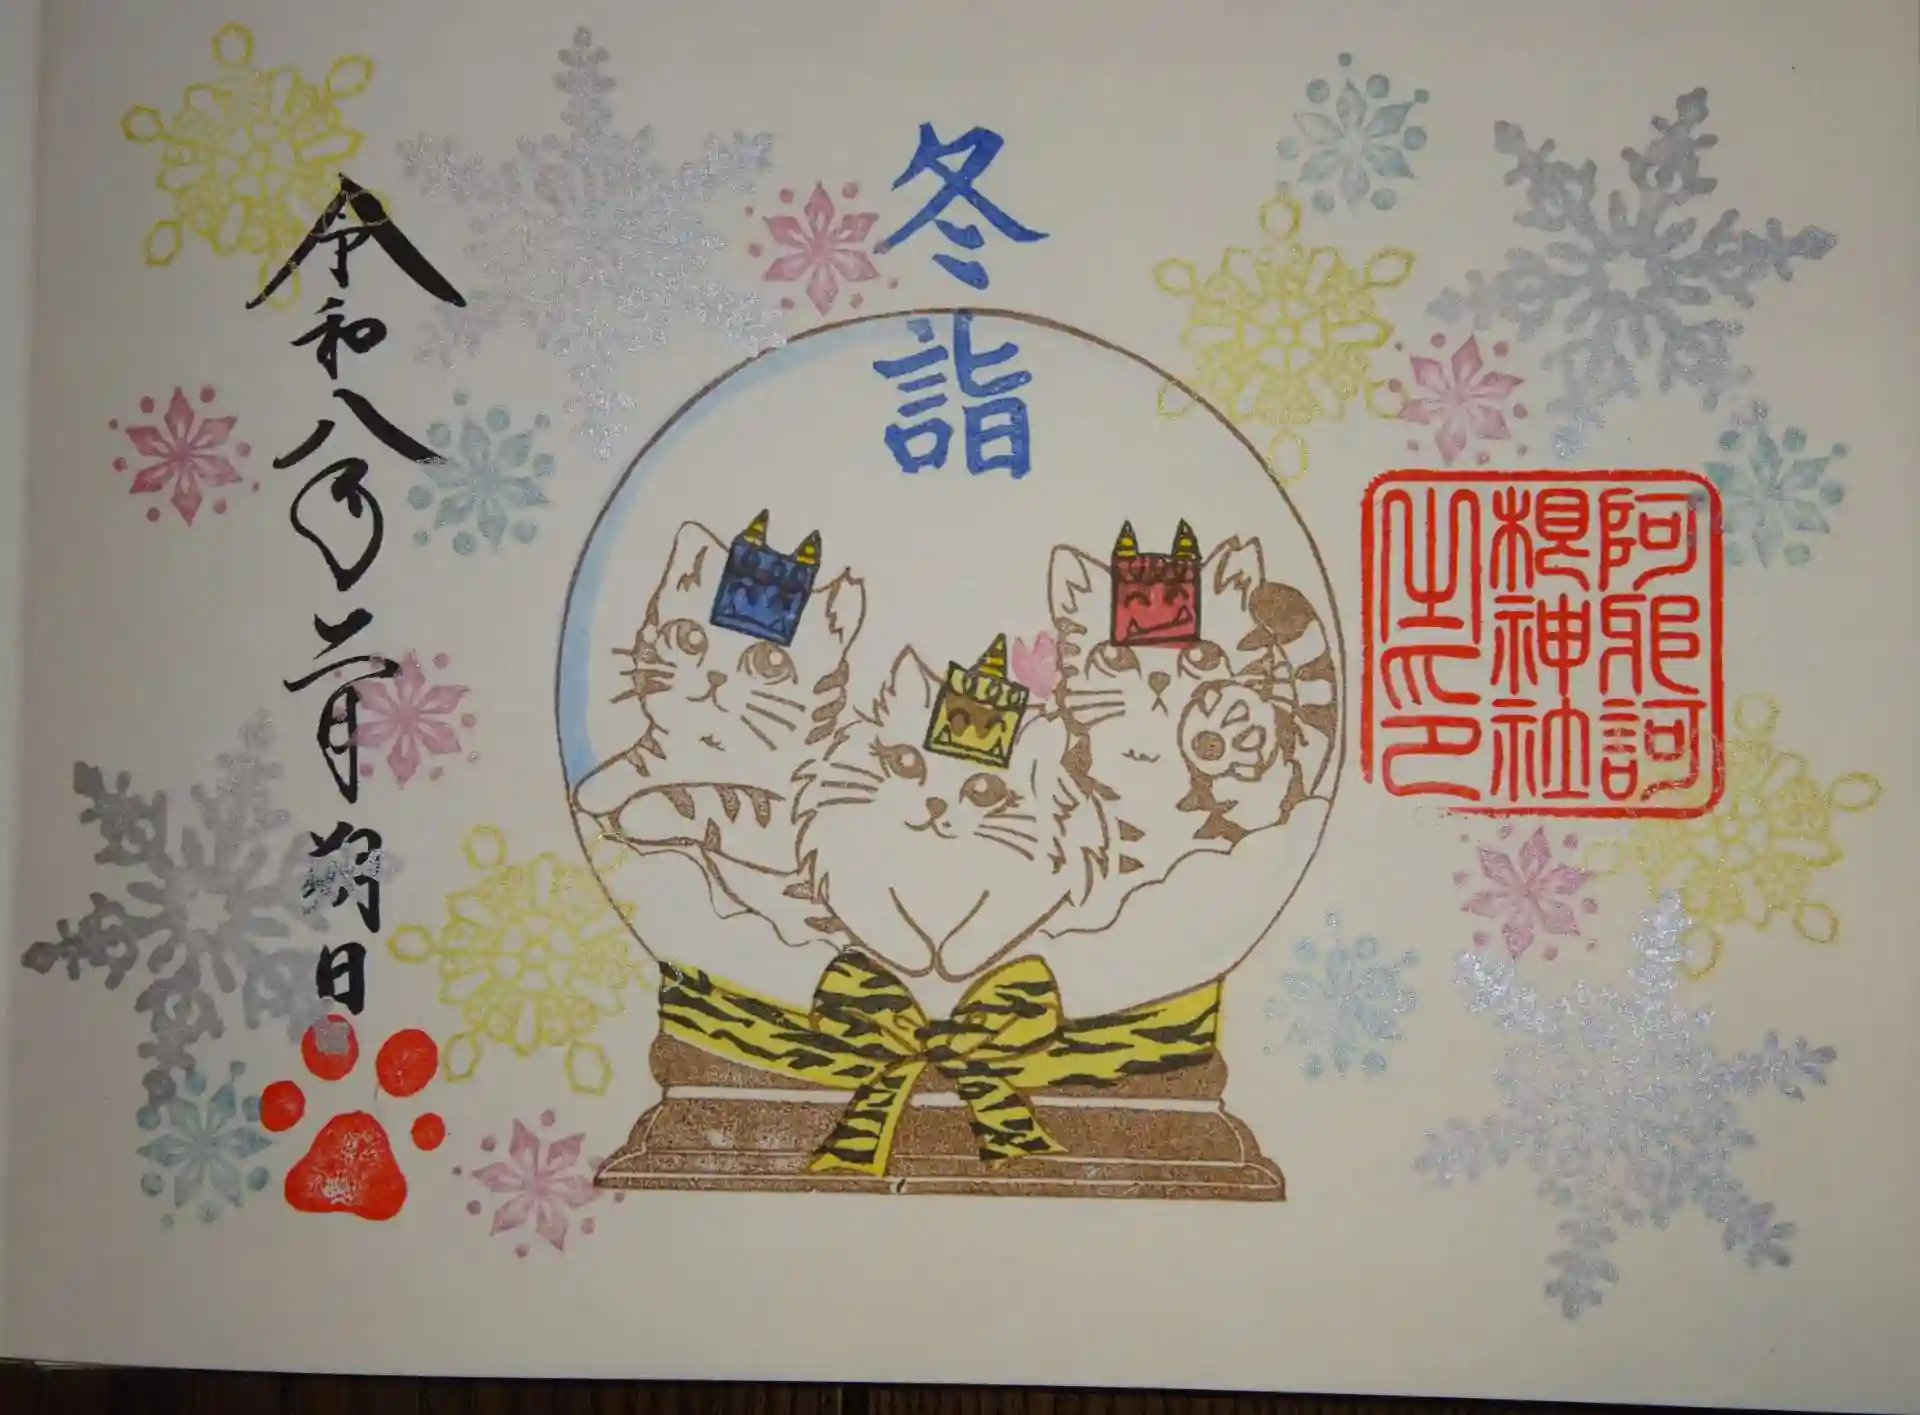 阿邪訶
根神社
之印
冬詣
令和八年二月朔日